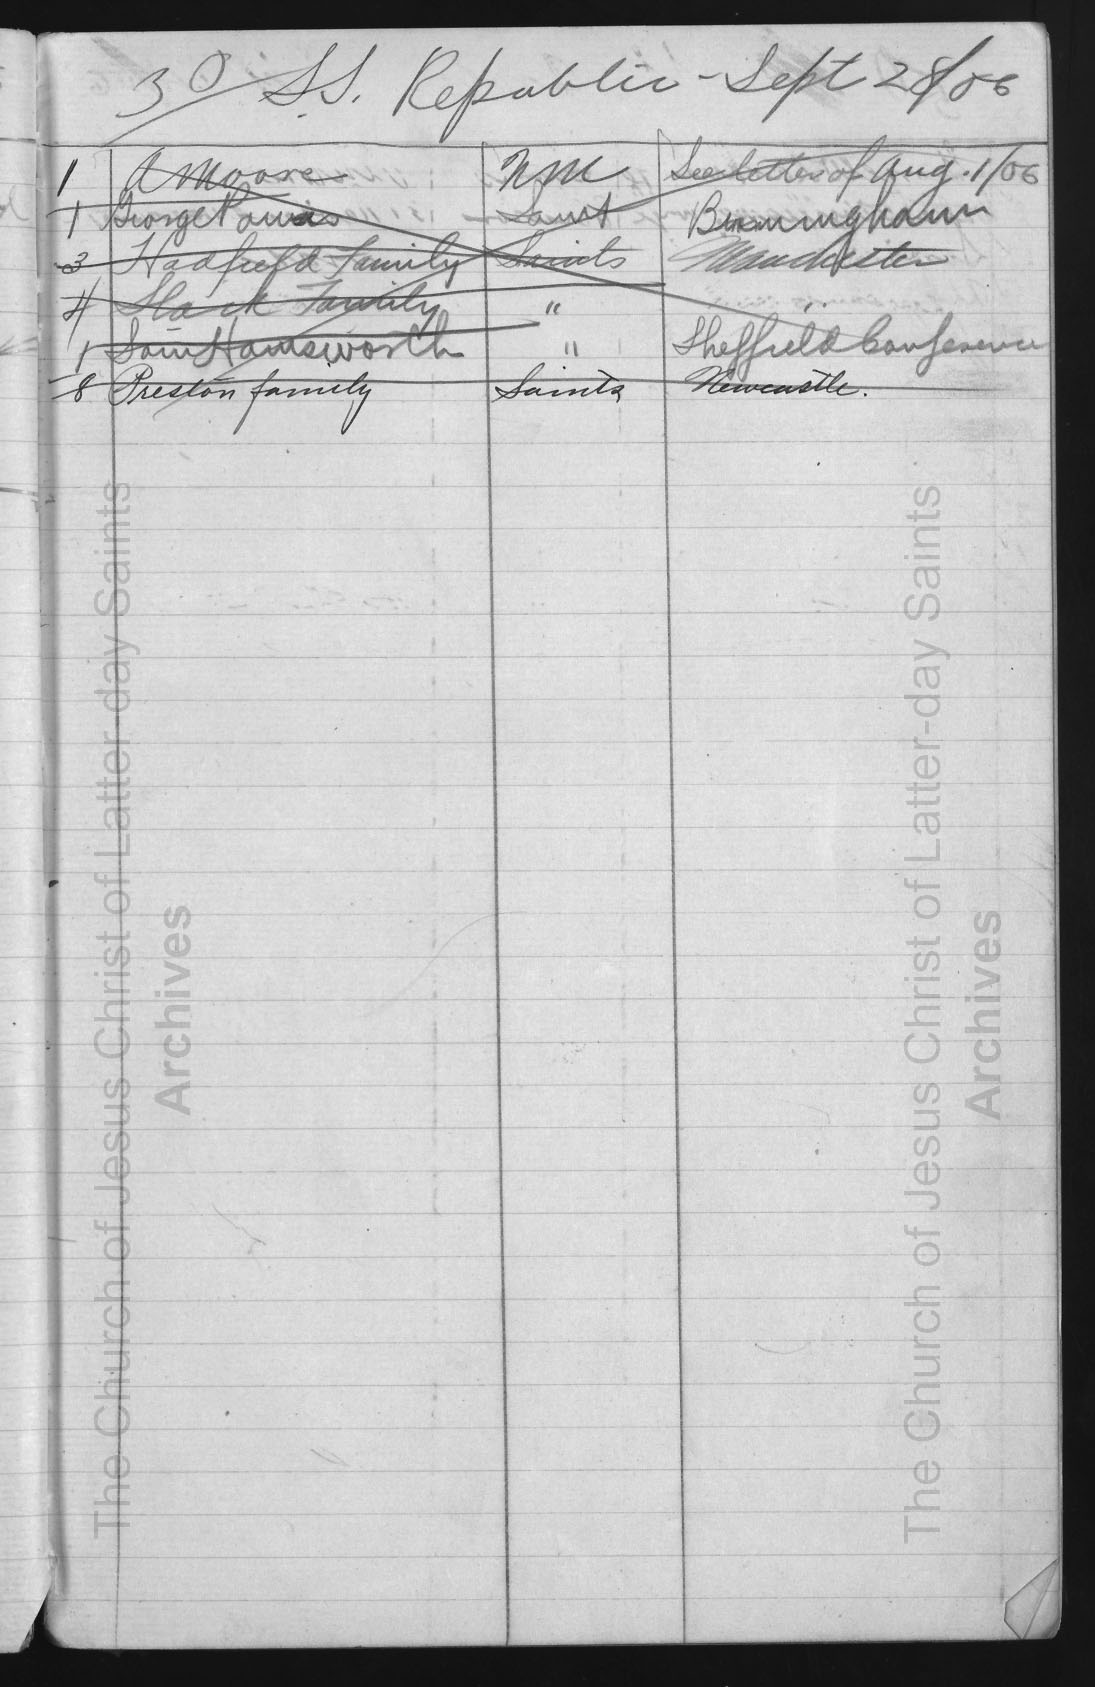 30 S.S. Republic - Sept 28/06
1 A Moore NM See letter of Aug. 1/06
1 George Saint Birmingham
3 Hadfield Family Saints Manchester
4 Slack Family "
1 Sam Hainsworth " Sheffield Conference
8 Preston family Saints Newcastle.
The Church of Jesus Christ of Latter-day Saints
Archives
The Church of Jesus Christ of Latter-day Saints
Archives